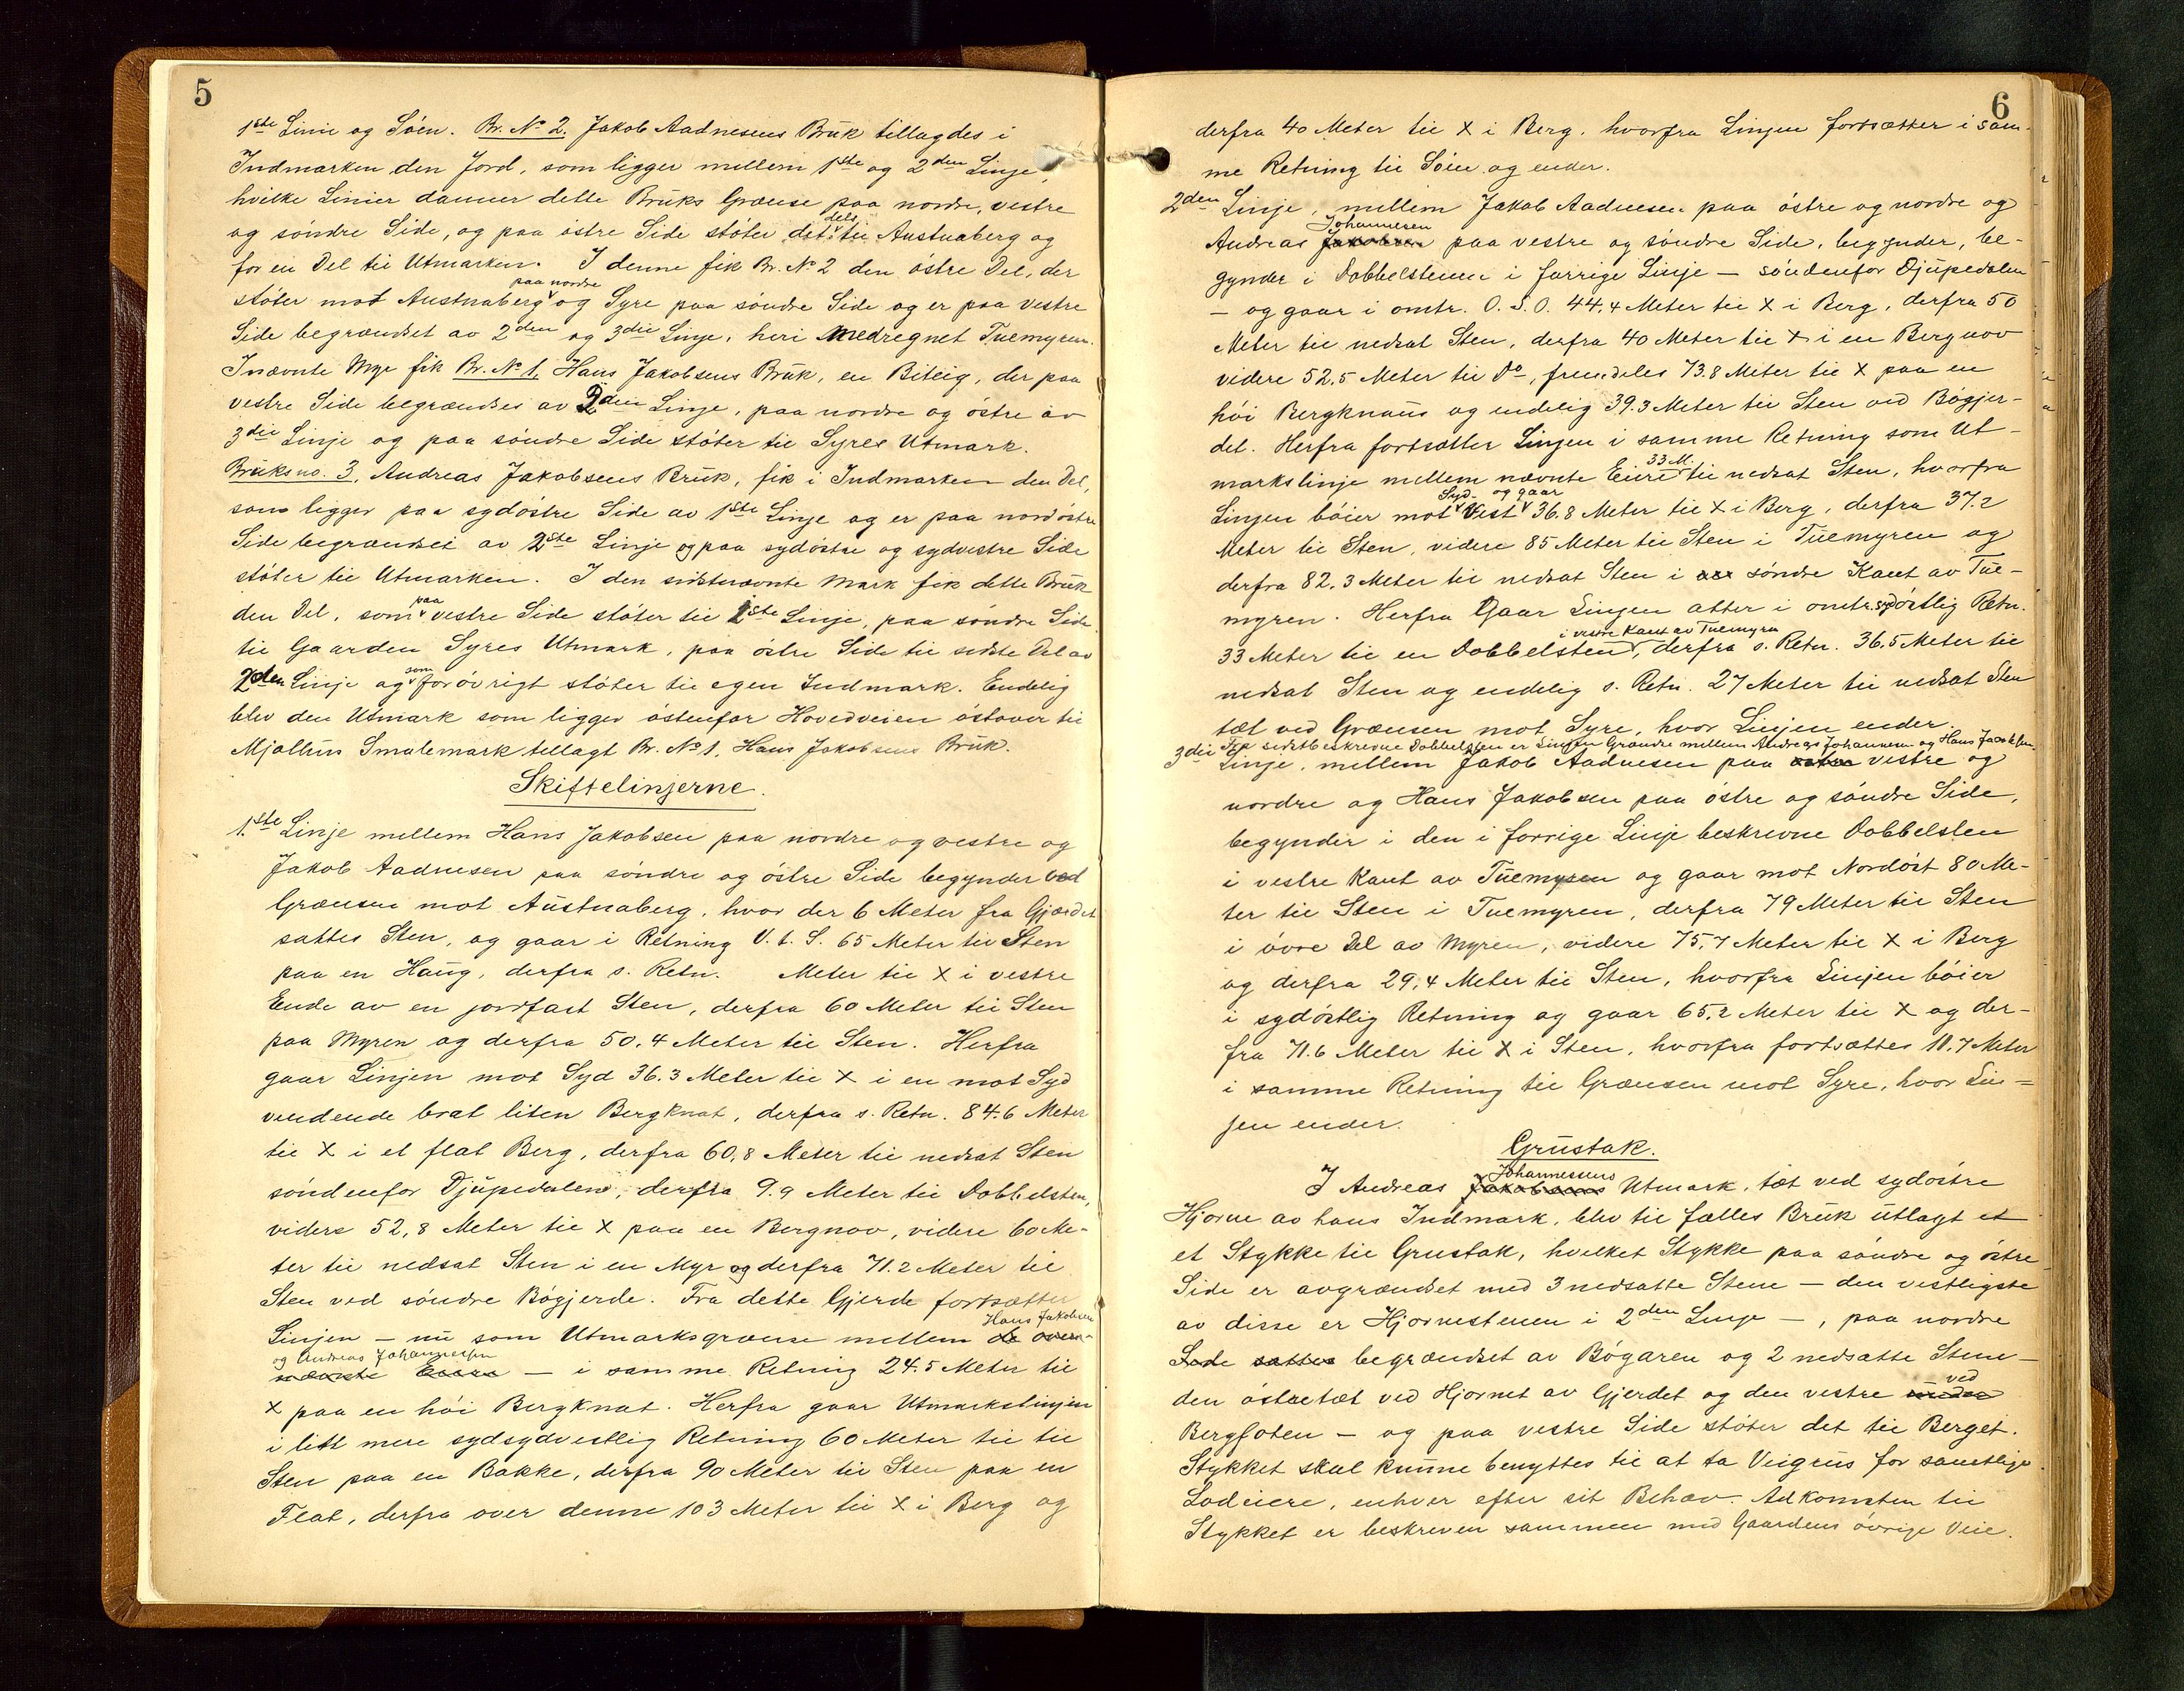 5
1ste Linie og Söen. Br. No 2. Jakob Aadnesens Bruk tillagdes i
Indmarken den Jord, som ligger mellem 1ste og 2den Linje,
hvilke Linier danner dette Bruks Grænse paa nordre, vestre
og söndre Side, og paa östre Side stöter det dels til Austnaberg og
for en Del til Utmarken. I denne fik Br. No 2 den östre Del, der
stöter mot Austnaberg paa nordre og Syre paa söndre Side og er paa vestre
Side begrændset av 2den og 3die Linje, heri medregnet Tuemyren.
I nævnte Myr fik Br. No 1, Hans Jakobsens Bruk, en Biteig, der paa
vestre Side begrændses av 2den Linje, paa nordre og östre av
3die Linje og paa söndre Side stöter til Syres Utmark.
Bruksno. 3, Andreas Jakobsens Bruk, fik i Indmarken den Del,
som ligger paa sydöstre Side av 1ste Linje og er paa nordöstre
Side begrændset av 2den Linje og paa sydöstre og sydvestre Side
stöter til Utmarken. I den sidstnævnte Mark fik dette Bruk
den Del, som paa vestre Side stöter til 1ste Linje, paa söndre Side
til Gaarden Syres Utmark, paa östre Side til sidste Del av
2den Linje og som forövrigt stöter til egen Indmark. Endelig
blev den Utmark som ligger östenfor Hovedveien östover til
Mjølhus Smalemark tillagt Br. No 1, Hans Jakobsens Bruk.
Skiftelinjerne.
1.ste Linje mellem Hans Jakobsen paa nordre og vestre og
Jakob Aadnesen paa söndre og östre Side begynder ved
Grænsen mot Austnaberg, hvor der 6 Meter fra Gjærdet
sattes Sten, og gaar i Retning V. t. S. 65 Meter til Sten
paa en Haug, derfra s. Retn. Meter til X i vestre
Ende av en jordfast Sten, derfra 60 Meter til Sten
paa Myren og derfra 50.4 Meter til Sten. Herfra
gaar Linjen mot Syd 36.3 Meter til X i en mot Syd
vendende brat liten Bergknat, derfra s. Retn. 84.6 Meter
til X i et flat Berg, derfra 60,8 Meter til nedsat Sten
söndenfor Djupedalen, derfra 9.9 Meter til Dobbelsten,
videre 52,8 Meter til X paa en Bergnov, videre 60 Me-
ter til nedsat Sten i en Myr og derfra 71.2 Meter til
Sten ved söndre Bögjerde. Fra dette Gjerde fortsætter
Linjen – nu som Utmarksgrænse mellem de oven- Hans Jakobsen
og Andreas Johannessen
nævnte Eiere – i samme Retning 24.5 Meter til
X paa en höi Bergknat. Herfra gaar Utmarkslinjen
i litt mere sydsydvestlig Retning 60 Meter til til
Sten paa en Bakke, derfra 90 Meter til Sten paa en
Flat, derfra over denne 103 Meter til X i Berg og
6
derfra 40 Meter til X i Berg, hvorfra Linjen fortsætter i sam-
me Retning til Söen og ender.
2den Linje, mellem Jakob Aadnesen paa östre og nordre og
Andreas Jakobsen Johannesen paa vestre og söndre Side, begynder, be-
gynder i Dobbelstenen i forrige Linje – söndenfor Djupedalen
– og gaar i omtr. O.S.O. 44,4 Meter til X i Berg, derfra 50
Meter til nedsat Sten, derfra 40 Meter til X i en Bergnov
videre 52,5 Meter til Do, fremdeles 73.8 Meter til X paa en
höi Bergknaus og endelig 39.3 Meter til Sten ved Bögjer-
det. Herfra fortsætter Linjen i samme Retning som Ut-
markslinje mellem nævnte Eiere 33 M. til nedsat Sten, hvorfra
Linjen böier mot Syd- Vest og gaar 36.8 Meter til X i Berg, derfra 37.2
Meter til Sten, videre 85 Meter til Sten i Tuemyren og
derfra 82,3 Meter til nedsat Sten i söndre Kant av Tue-
myren. Herfra gaar Linjen atter i omtr. sydöstlig Retn.
33 Meter til en Dobbelsten i vestre Kant av Tuemyren, derfra s. Retn. 36,5 Meter til
nedsat Sten og endelig s. Retn. 27 Meter til nedsat Sten
tæt ved Grænsen mot Syre, hvor Linjen ender.
Fra sidstbeskrevne Dobbelsten er Linjen Grændse mellem Andreas Johannesen og Hans Jacobsen.
3die Linje, mellem Jakob Aadnesen paa östre vestre og
nordre og Hans Jakobsen paa östre og söndre Side,
begynder i den i forrige Linje beskrevne Dobbelsten
i vestre Kant av Tuemyren og gaar mot Nordöst 80 Me-
ter til Sten i Tuemyren, derfra 79 Meter til Sten
i övre Del av Myren, videre 75,7 Meter til X i Berg
og derfra 29,4 Meter til Sten, hvorfra Linjen böier
i sydöstlig Retning og gaar 65,2 Meter til X og der-
fra 71.6 Meter til X i Sten, hvorfra fortsættes 11.7 Meter
i samme Retning til Grænsen mot Syre, hvor Lin-
jen ender.
Grustak.
I Andreas Jakobsens Johannessens Utmark, tæt ved sydöstre
Hjörne av hans Indmark, blev til fælles Bruk utlagt et
et Stykke til Grustak, hvilket Stykke paa söndre og östre
Side er avgrændset med 3 nedsatte Stene – den vestligste
av disse er Hjörnestenen i 2den Linje –, paa nordre
Side sattes begrændset av Bögaren og 2 nedsatte Stene –
den östre tæt ved Hjörnet av Gjerdet og den vestre under ved
Bergfoten – og paa vestre Side stöter det til Berget.
Stykket skal kunne benyttes til at ta Veigrus for samtlige
Lodeiere, enhver efter sit Behov. Adkomsten til
Stykket er beskreven sammen med Gaardens övrige Veie.